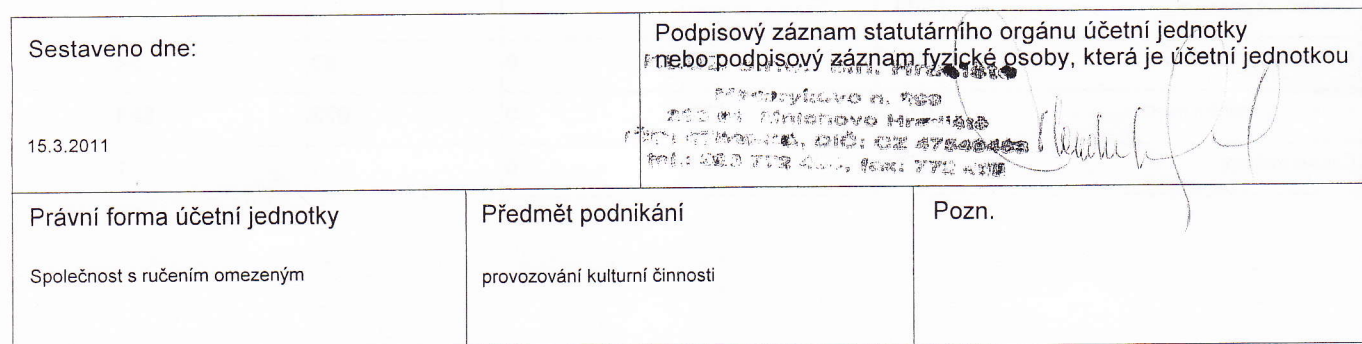 Sestaveno dne:
15.3.2011
Podpisový záznam statutárního orgánu účetní jednotky
nebo podpisový záznam fyzické osoby, která je účetní jednotkou
Mnichovo Hradiště
DIČ: CZ
fax: 772
Právní forma účetní jednotky
Společnost s ručením omezeným
Předmět podnikání
provozování kulturní činnosti
Pozn.